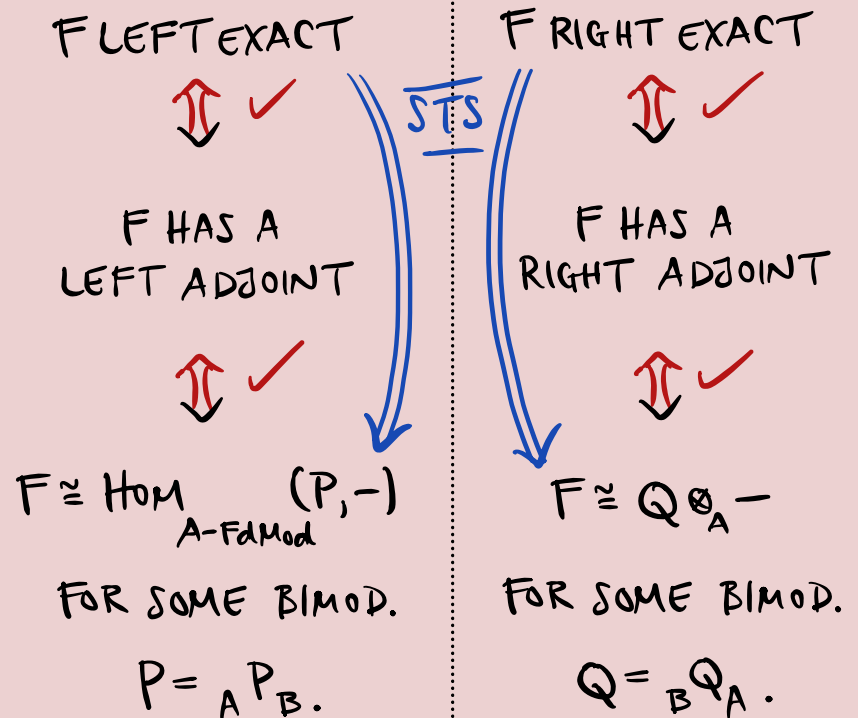 F LEFT EXACT
F HAS A
LEFT ADJOINT
F ≅ HOM_{A-FdMod} (P, -)
FOR SOME BIMOD.
P = _A P_B .
STS
F RIGHT EXACT
F HAS A
RIGHT ADJOINT
F ≅ Q ⊗_A -
FOR SOME BIMOD.
Q = _B Q_A .